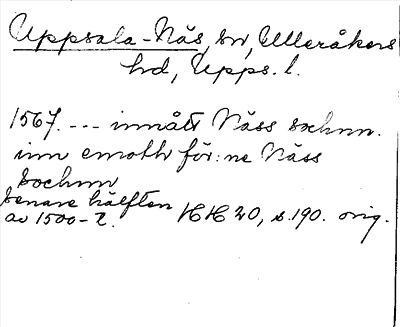 Uppsala-Näs, sn, Ulleråkers
hd, Upps. l.
1567. --- innått Näss sochnn.
inn emoth för:ne Näss
Sochnn
senare hälften
av 1500-t.
HH 20, s. 190. orig.